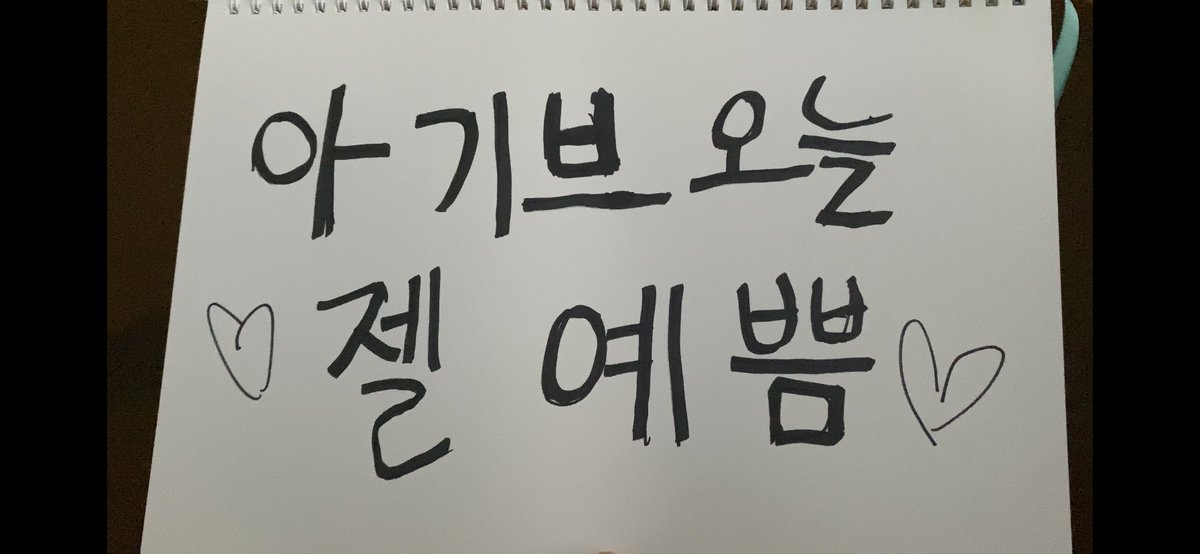 아기브 오늘
♡ 젤 예쁨 ♡